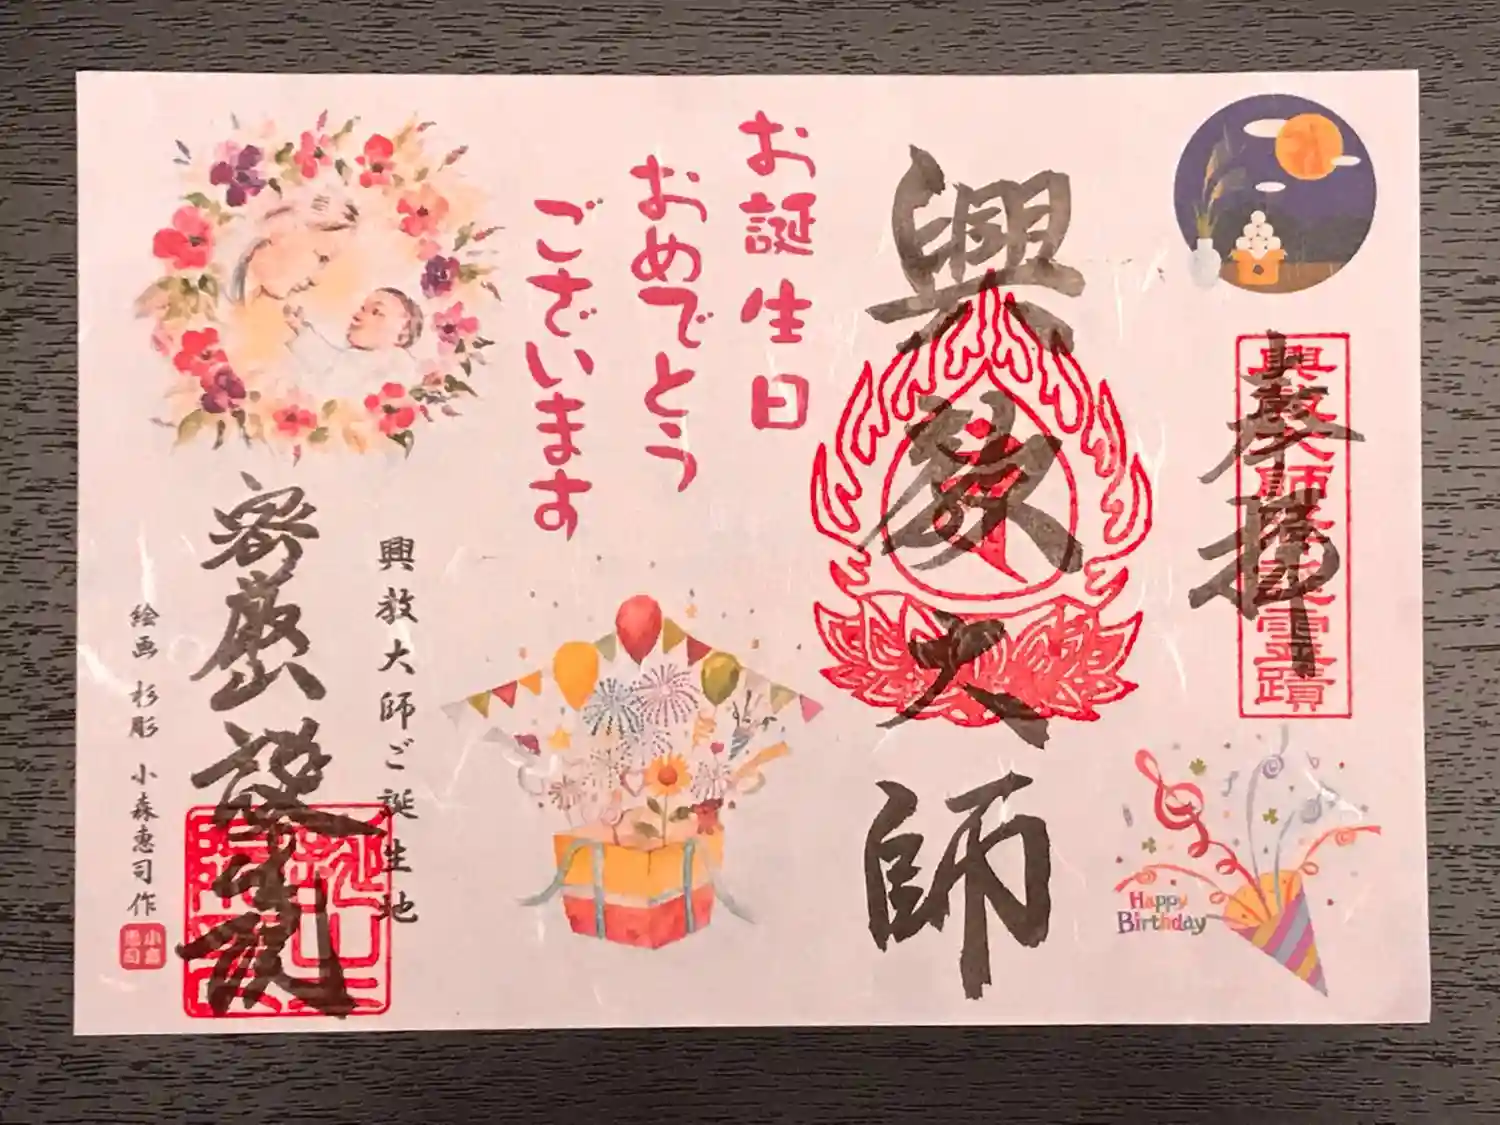 奉拝
興教大師降誕霊蹟
Happy
Birthday
興教大師
お誕生日
おめでとう
ございます
興教大師ご誕生地
密厳山誕生院
絵画 杉彫 小森惠司作